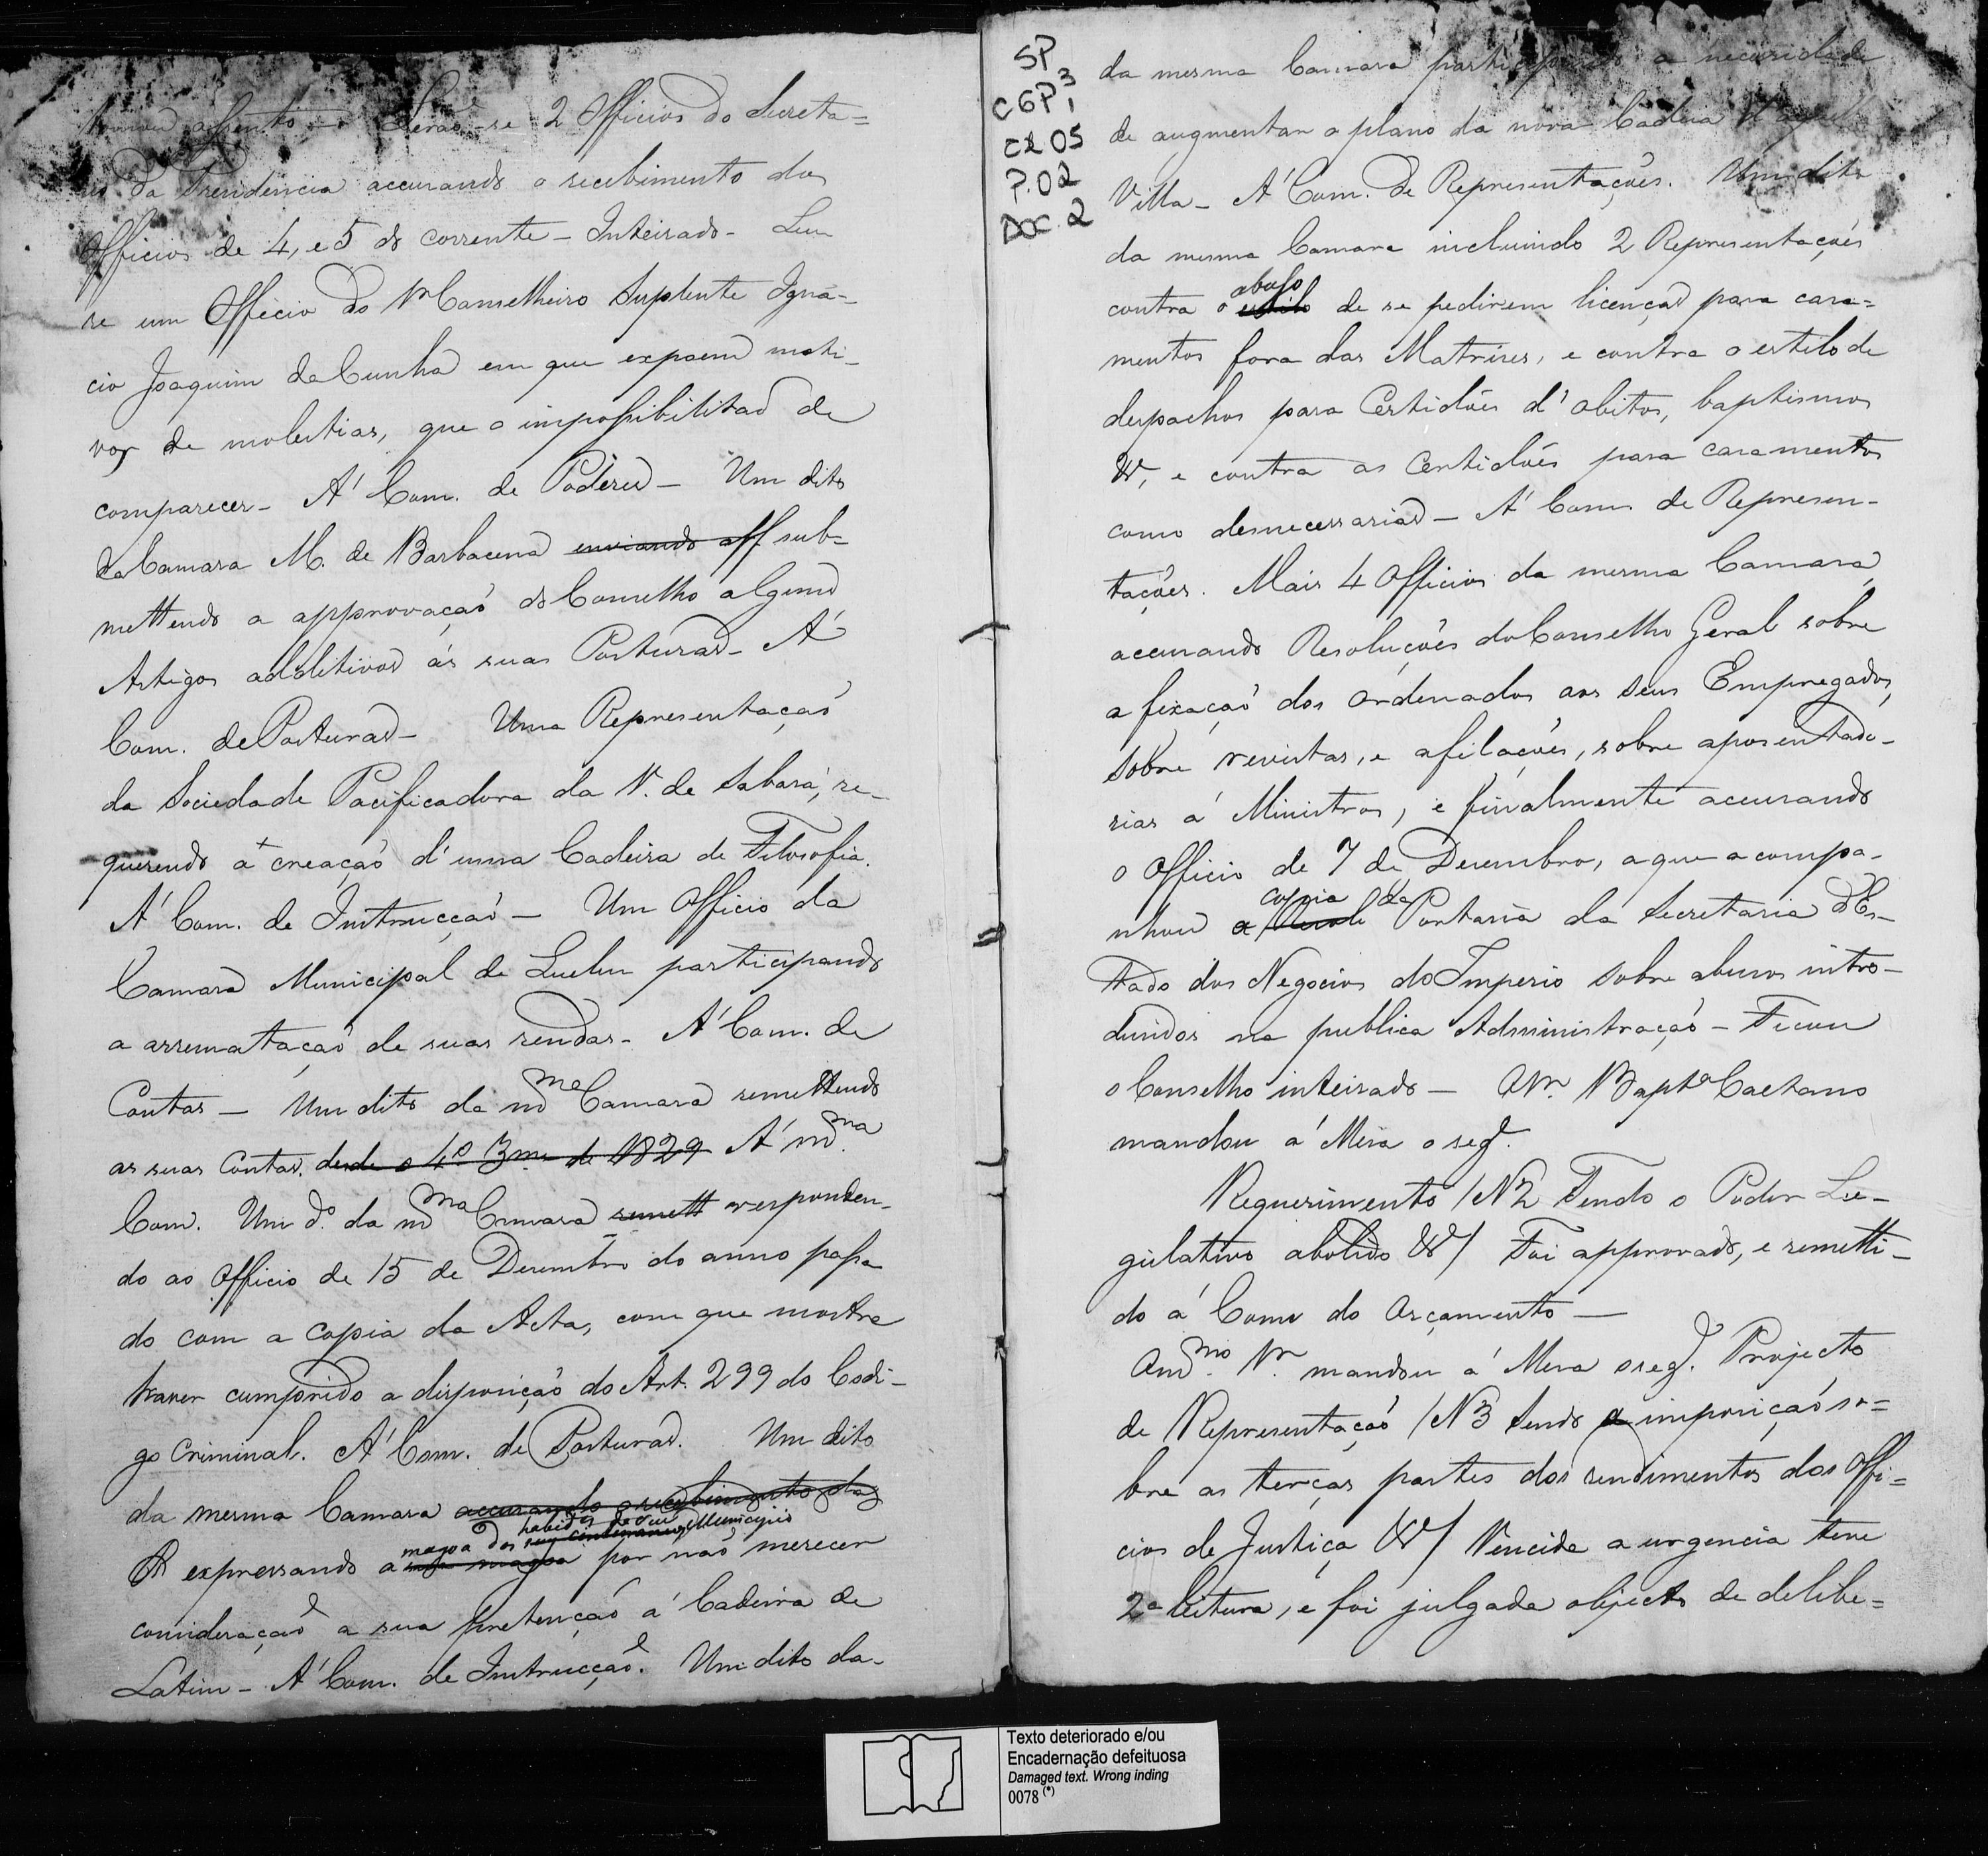 tomou assento — Lerão-se 2 Officios do Secreta=
rio da Presidencia accusando o recebimento dos
Officios de 4, e 5 do corrente — Inteirado — Leu
se um Officio do Nr Conselheiro Suplente Igna-
cio Joaquim da Cunha em que expoem moti-
vos de molestias, que o impossibilitão de
comparecer — Á Com. de Poderes — Um dito
da Camara M. de Barbacena enviando off sub=
mettendo a approvação do Conselho alguns
Artigos additivos ás suas Posturas — Á
Com. de Posturas — Uma Representação
da Sociedade Pacificadora da V. de Sabará, re-
querendo a creação d'uma Cadeira de Filosofia.
Á Com. de Instrucção — Um Officio da
Camara Municipal de Queluz participando
a arrematação de suas rendas — Á Com. de
Contas — Um dito da mma Camara remettendo
as suas Contas. desde o 4º 3me de 1829 Á mma
Com. Um do da mma Camara remett responden-
do ao Officio de 15 de Dezembro do anno passa
do com a copia da Acta, com que mostra
haver cumprido a disposição do Art. 299 do Codi-
go Criminal. Á Com. de Posturas. Um dito
da mesma Camara accusando o recebimento das
magoa dos habides de seu Municipio
R expressando a sua magoa por não merecer
consideração a sua pretenção á Cadeira de
Latim — Á Com. de Instrucção. Um dito da
SP
CGP3 1
CX 05
P. 02
DOC. 2
da mesma Camara participando a necessidade
de augmentar o plano da nova Cadeia d'aquella
Villa — Á Com. de Representações. Um dito
da mesma Camara incluindo 2 Representações
abuso
contra o estilo de se pedirem licenças para casa=
mentos fora das Matrizes, e contra o estilo de
despachos para Certidões d'obitos, baptismos
&, e contra as Certidões para casamentos
como desnecessarias — Á Com de Represen-
tações. Mais 4 Officios da mesma Camara
accusando Resoluções do Conselho Geral sobre
a fixação dos ordenados aos seus Empregados,
sobre revistas, e afilações, sobre aposentado-
rias á Ministros, e finalmente accusando
o Officio de 7 de Dezembro, a que acompa-
copia da
nhou a Portaria da Secretaria d'Es-
tado dos Negocios do Imperio sobre abusos intro-
duzidos na publica Administração — Ficou
o Conselho inteirado — O Nr. Bapta Caetano
mandou á Mesa o seg.
Requerimento /N2 Tendo o Poder Le-
gislativo abolido &/ Foi approvado, e remetti-
do á Com do Orçamento —
O mmo Nr. mandou á Mesa o seg. Projecto
de Representação /N3 Sendo a imposição so=
bre as terças partes dos rendimentos dos Offi=
cios de Justiça &/ Vencida a urgencia teve
2a leitura, e foi julgada objecto de delibe=
Texto deteriorado e/ou
Encadernação defeituosa
Damaged text. Wrong inding
0078 (*)